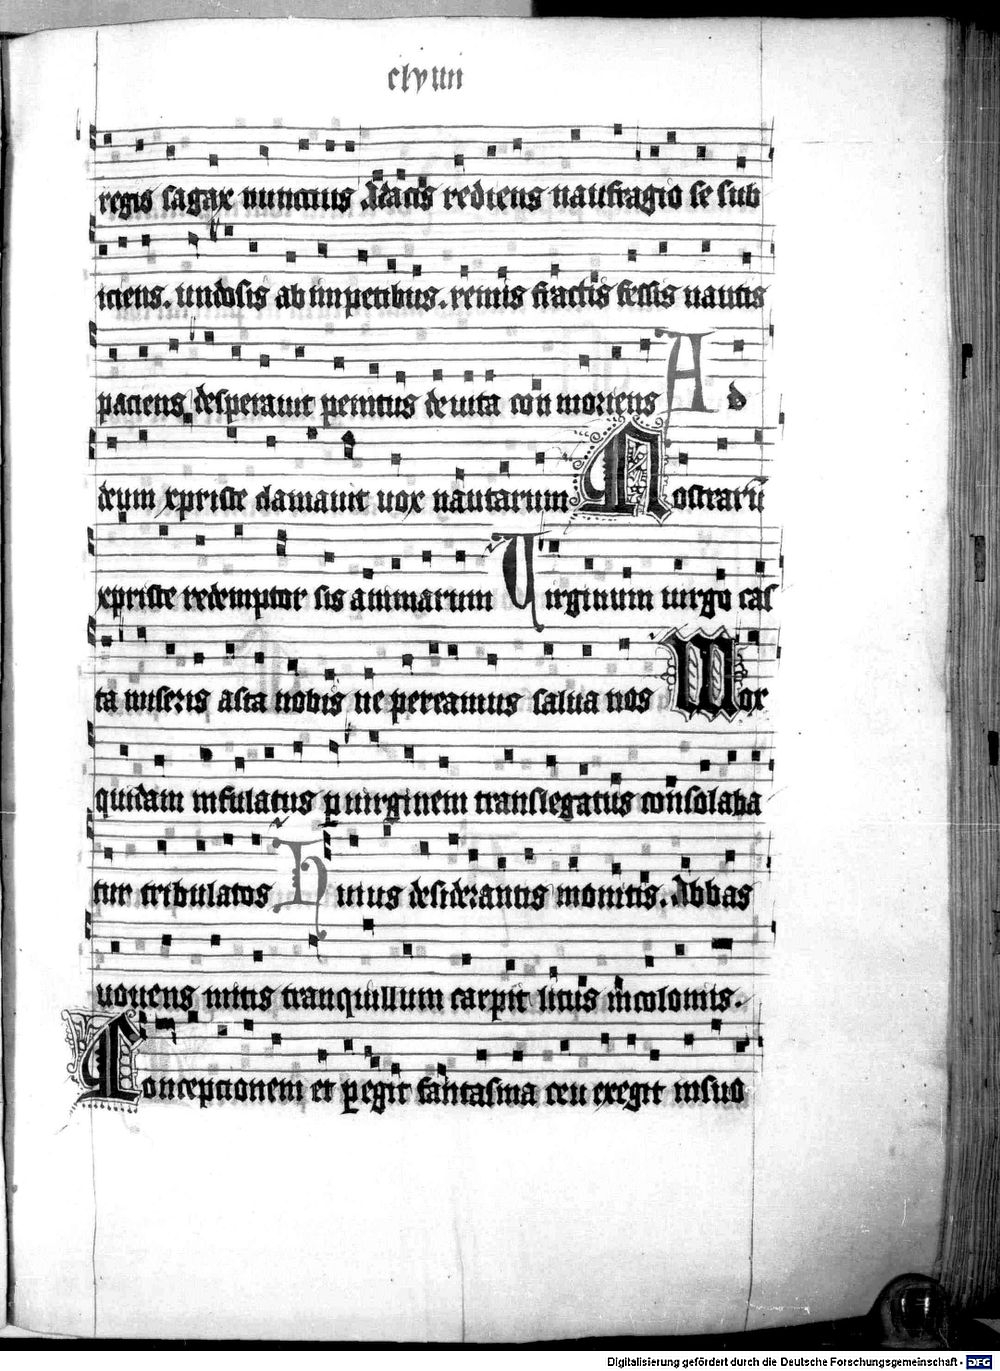 clviiii
regis sagax nunctius Dacis rediens naufragio se sub
iciens. undosis ab impetibus. remis fractis fessis nautis
paciens desperavit penitus de vita con moriens Ad
deum xpriste clamavit vox nautarum Nostrarū
xpriste redemptor sis animarum Virginum virgo cas
ta miseris asta nobis ne pereamus salva nos Mox
quidam infulatus p virginem translegatus consolaba
tur tribulatos Huius desiderantis monitis. Abbas
vovens mitis tranquillum carpit litus incolomis.
Concepcionem et pegit fantasma ceu exegit in suo
Digitalisierung gefördert durch die Deutsche Forschungsgemeinschaft - DFG